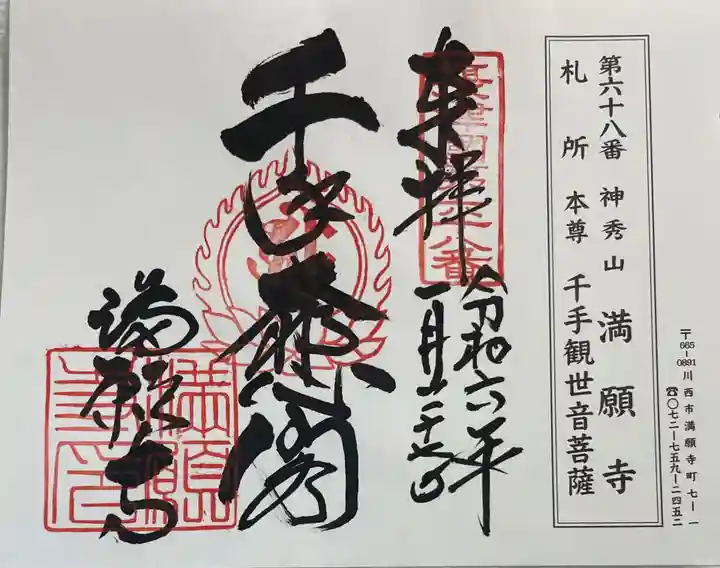 第六十八番 神秀山 満願寺
札所 本尊 千手観世音菩薩
〒665-0891 川西市満願寺町七ー一
☎〇七二ー七五九ー二四五二
奉拝
令和六年
千手
満願寺
満願
寺印